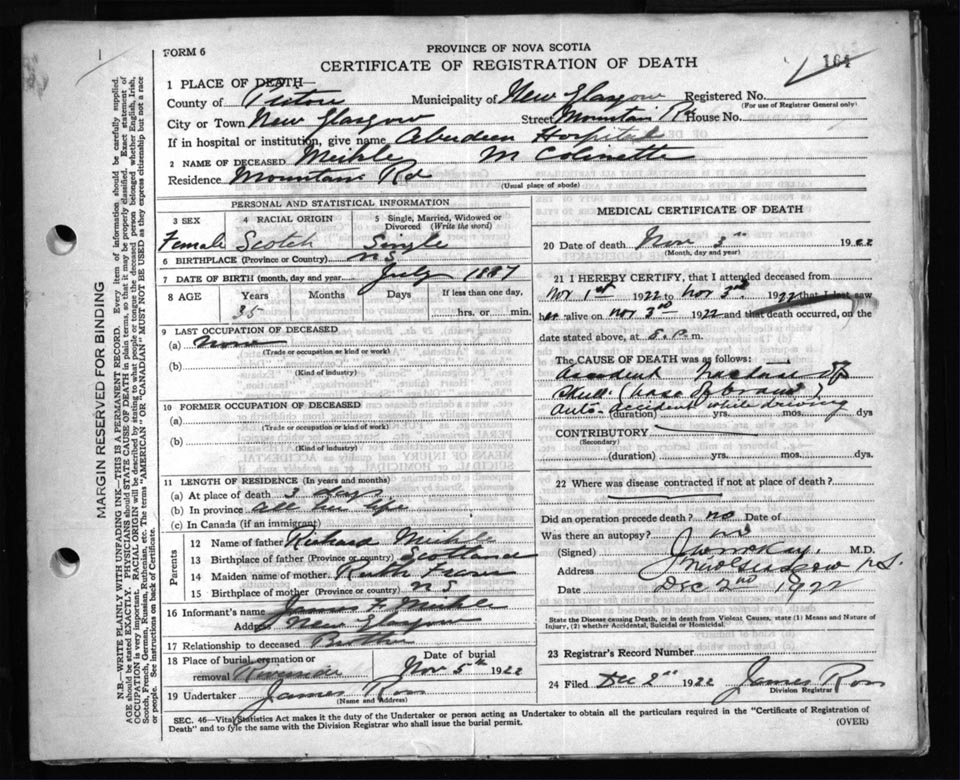 FORM 6
PROVINCE OF NOVA SCOTIA
CERTIFICATE OF REGISTRATION OF DEATH
161
1 PLACE OF DEATH—
County of Pictou Municipality of New Glasgow Registered No.
(For use of Registrar General only)
City or Town New Glasgow Street Mountain Rd House No.
If in hospital or institution, give name Aberdeen Hospital
2 NAME OF DECEASED Meikle M Colinette
Residence Mountain Rd
(Usual place of abode)
PERSONAL AND STATISTICAL INFORMATION
3 SEX 4 RACIAL ORIGIN 5 Single, Married, Widowed or Divorced (Write the word)
Female Scotch Single
6 BIRTHPLACE (Province or Country) N S
7 DATE OF BIRTH (month, day and year) July 1887
8 AGE Years Months Days If less than one day,
35 hrs. or min.
9 LAST OCCUPATION OF DECEASED
(a) None
(Trade or occupation or kind or work)
(b)
(Kind of industry)
10 FORMER OCCUPATION OF DECEASED
(a)
(Trade or occupation or kind of work)
(b)
(Kind of industry)
11 LENGTH OF RESIDENCE (In years and months)
(a) At place of death 3 days
(b) In province all her life
(c) In Canada (if an immigrant)
Parents
12 Name of father Richard Meikle
13 Birthplace of father (Province or country) Scotland
14 Maiden name of mother Ruth Fraser
15 Birthplace of mother (Province or country) N S
16 Informant's name James F Meikle
Address New Glasgow
17 Relationship to deceased Brother
18 Place of burial, cremation or removal Riverside Date of burial Nov 5th 1922
19 Undertaker James Ross
(Name and Address)
MEDICAL CERTIFICATE OF DEATH
20 Date of death Nov 3rd 1922
(Month, day and year)
21 I HEREBY CERTIFY, that I attended deceased from
Nov 1st 1922 to Nov 3rd 1922 that I last saw
her alive on Nov 3rd 1922 and that death occurred, on the
date stated above, at 8. P. m.
The CAUSE OF DEATH was as follows:
Accident Fracture of
skull (base of brain)
Auto-accident while driving
(duration) yrs. mos. dys
CONTRIBUTORY
(Secondary)
(duration) yrs. mos. dys.
22 Where was disease contracted if not at place of death?
Did an operation precede death? no Date of
Was there an autopsy? no
(Signed) McKay, M.D.
Address New Glasgow N.S.
Date Dec 2nd 1922
State the Disease causing Death, or in death from Violent Causes, state (1) Means and Nature of Injury, (2) whether Accidental, Suicidal or Homicidal.
23 Registrar's Record Number
24 Filed Dec 2nd 1922 James Ross
Division Registrar
SEC. 46—Vital Statistics Act makes it the duty of the Undertaker or person acting as Undertaker to obtain all the particulars required in the "Certificate of Registration of
Death" and to fyle the same with the Division Registrar who shall issue the burial permit.
(OVER)
MARGIN RESERVED FOR BINDING
N.B.—WRITE PLAINLY WITH UNFADING INK—THIS IS A PERMANENT RECORD. Every item of information should be carefully supplied.
AGE should be stated EXACTLY. PHYSICIANS should STATE CAUSE OF DEATH in plain terms, so that it may be properly classified. Exact statement of
OCCUPATION is very important. RACIAL ORIGIN will be described by stating to what people or tongue the deceased person belonged whether English, Irish,
Scotch, French, German, Russian, Ruthenian, etc. The terms "AMERICAN" OR "CANADIAN" MUST NOT BE USED as they express citizenship but not a race
or people. See instructions on back of Certificate.